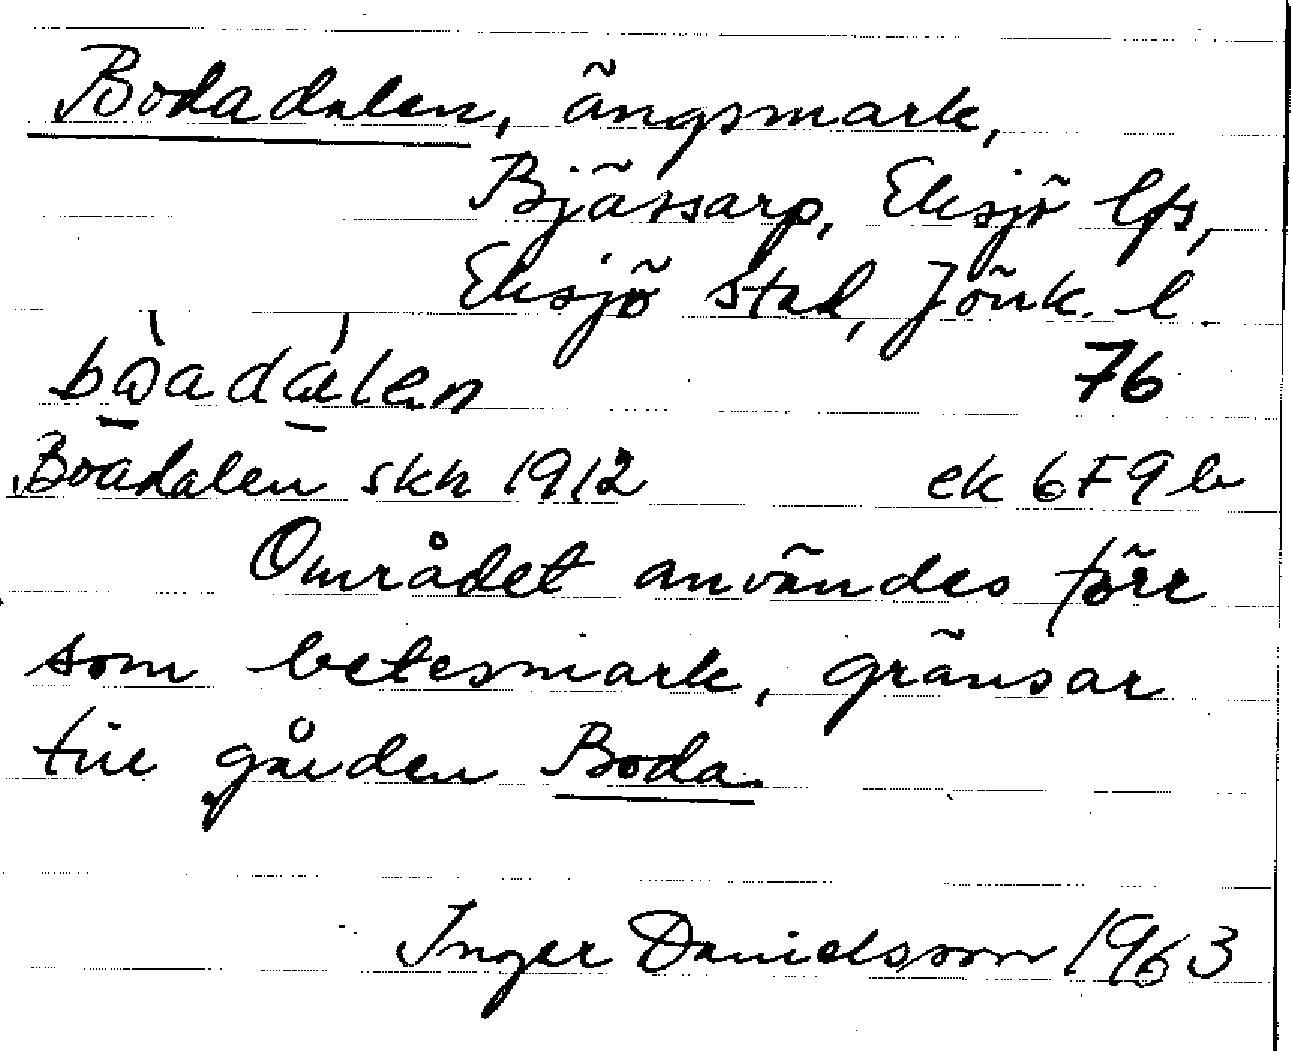 Bodadalen, ängsmark,
Bjässarp, Eksjö lfs,
Eksjö stad, Jönk. l.
76
Boadalen skh 1912 ek 6F9b
Området användes förr
som betesmark, gränsar
till gården Boda.
Inger Danielsson 1963